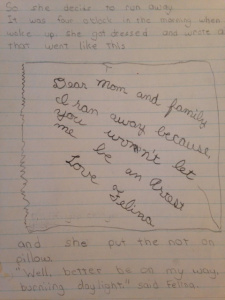 So she decide to run away
It was four oclock in the morning when
woke up, she got dressed and wrote a
that went like this
Dear Mom and family
I ran away because
you won't let
me be an Artist
Love
Felina
and she put the not on
pillows
"Well, better be on my way,
burning daylight." said Felisa.